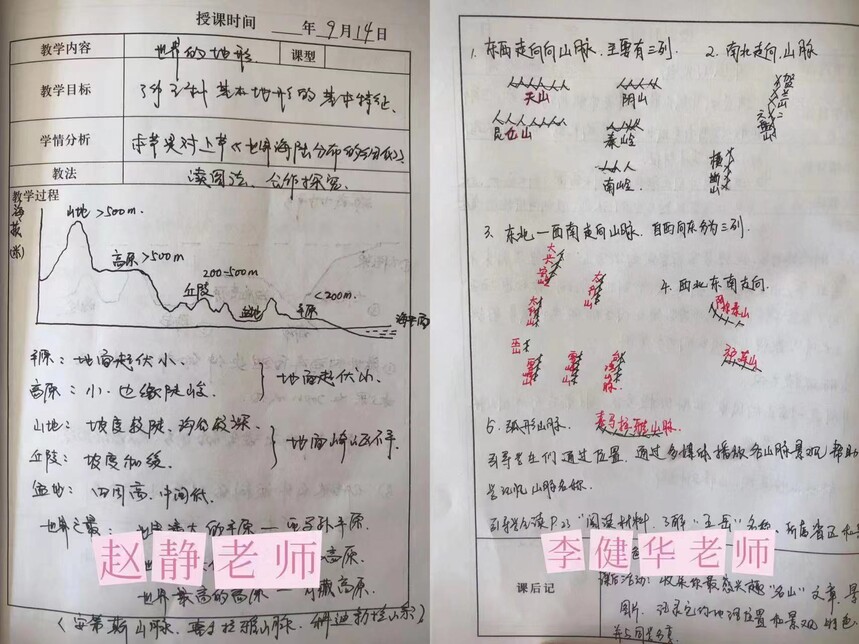 授课时间 年 9月14日
教学内容 世界的地形 课型
教学目标 了解五种基本地形的基本特征、
学情分析
教法 读图法、合作探究、
教学过程
海拔(米)
山地>500m.
高原>500m
200-500m
丘陵
盆地
平原
<200m.
海平面
平原：地面起伏小.
高原：小.边缘陡峻
地面起伏小.
山地：坡度较陡.沟谷较深.
丘陵：坡度和缓.
地面崎岖不平
盆地：四周高.中间低.
世界之最：世界最大的平原—亚马孙平原.
高原.
世界最高的高原—青藏高原.
(安第斯山脉.喜马拉雅山脉.科迪勒拉山系)
赵静老师
1. 东西走向山脉.主要有三列.
天山 阴山
昆仑山 秦岭
南岭
2. 南北走向.山脉
贺兰山
六盘山
横断山
3. 东北—西南走向山脉.自西向东分为三列.
大兴安岭
太行山
巫山
雪峰山
长白山
武夷山
4. 西北东南走向.
阿尔泰山
祁连山
5. 弧形山脉. 喜马拉雅山脉.
引导学生们通过位置.通过多媒体播放各山脉景观帮助
学记忆山脉名称.
引导学生读P23"阅读材料.了解"五岳"名称、所属省区和
李健华老师
课后记
课后活动：收集你最感兴趣"名山"文章、
图片. 记录它的地理位置和景观特色